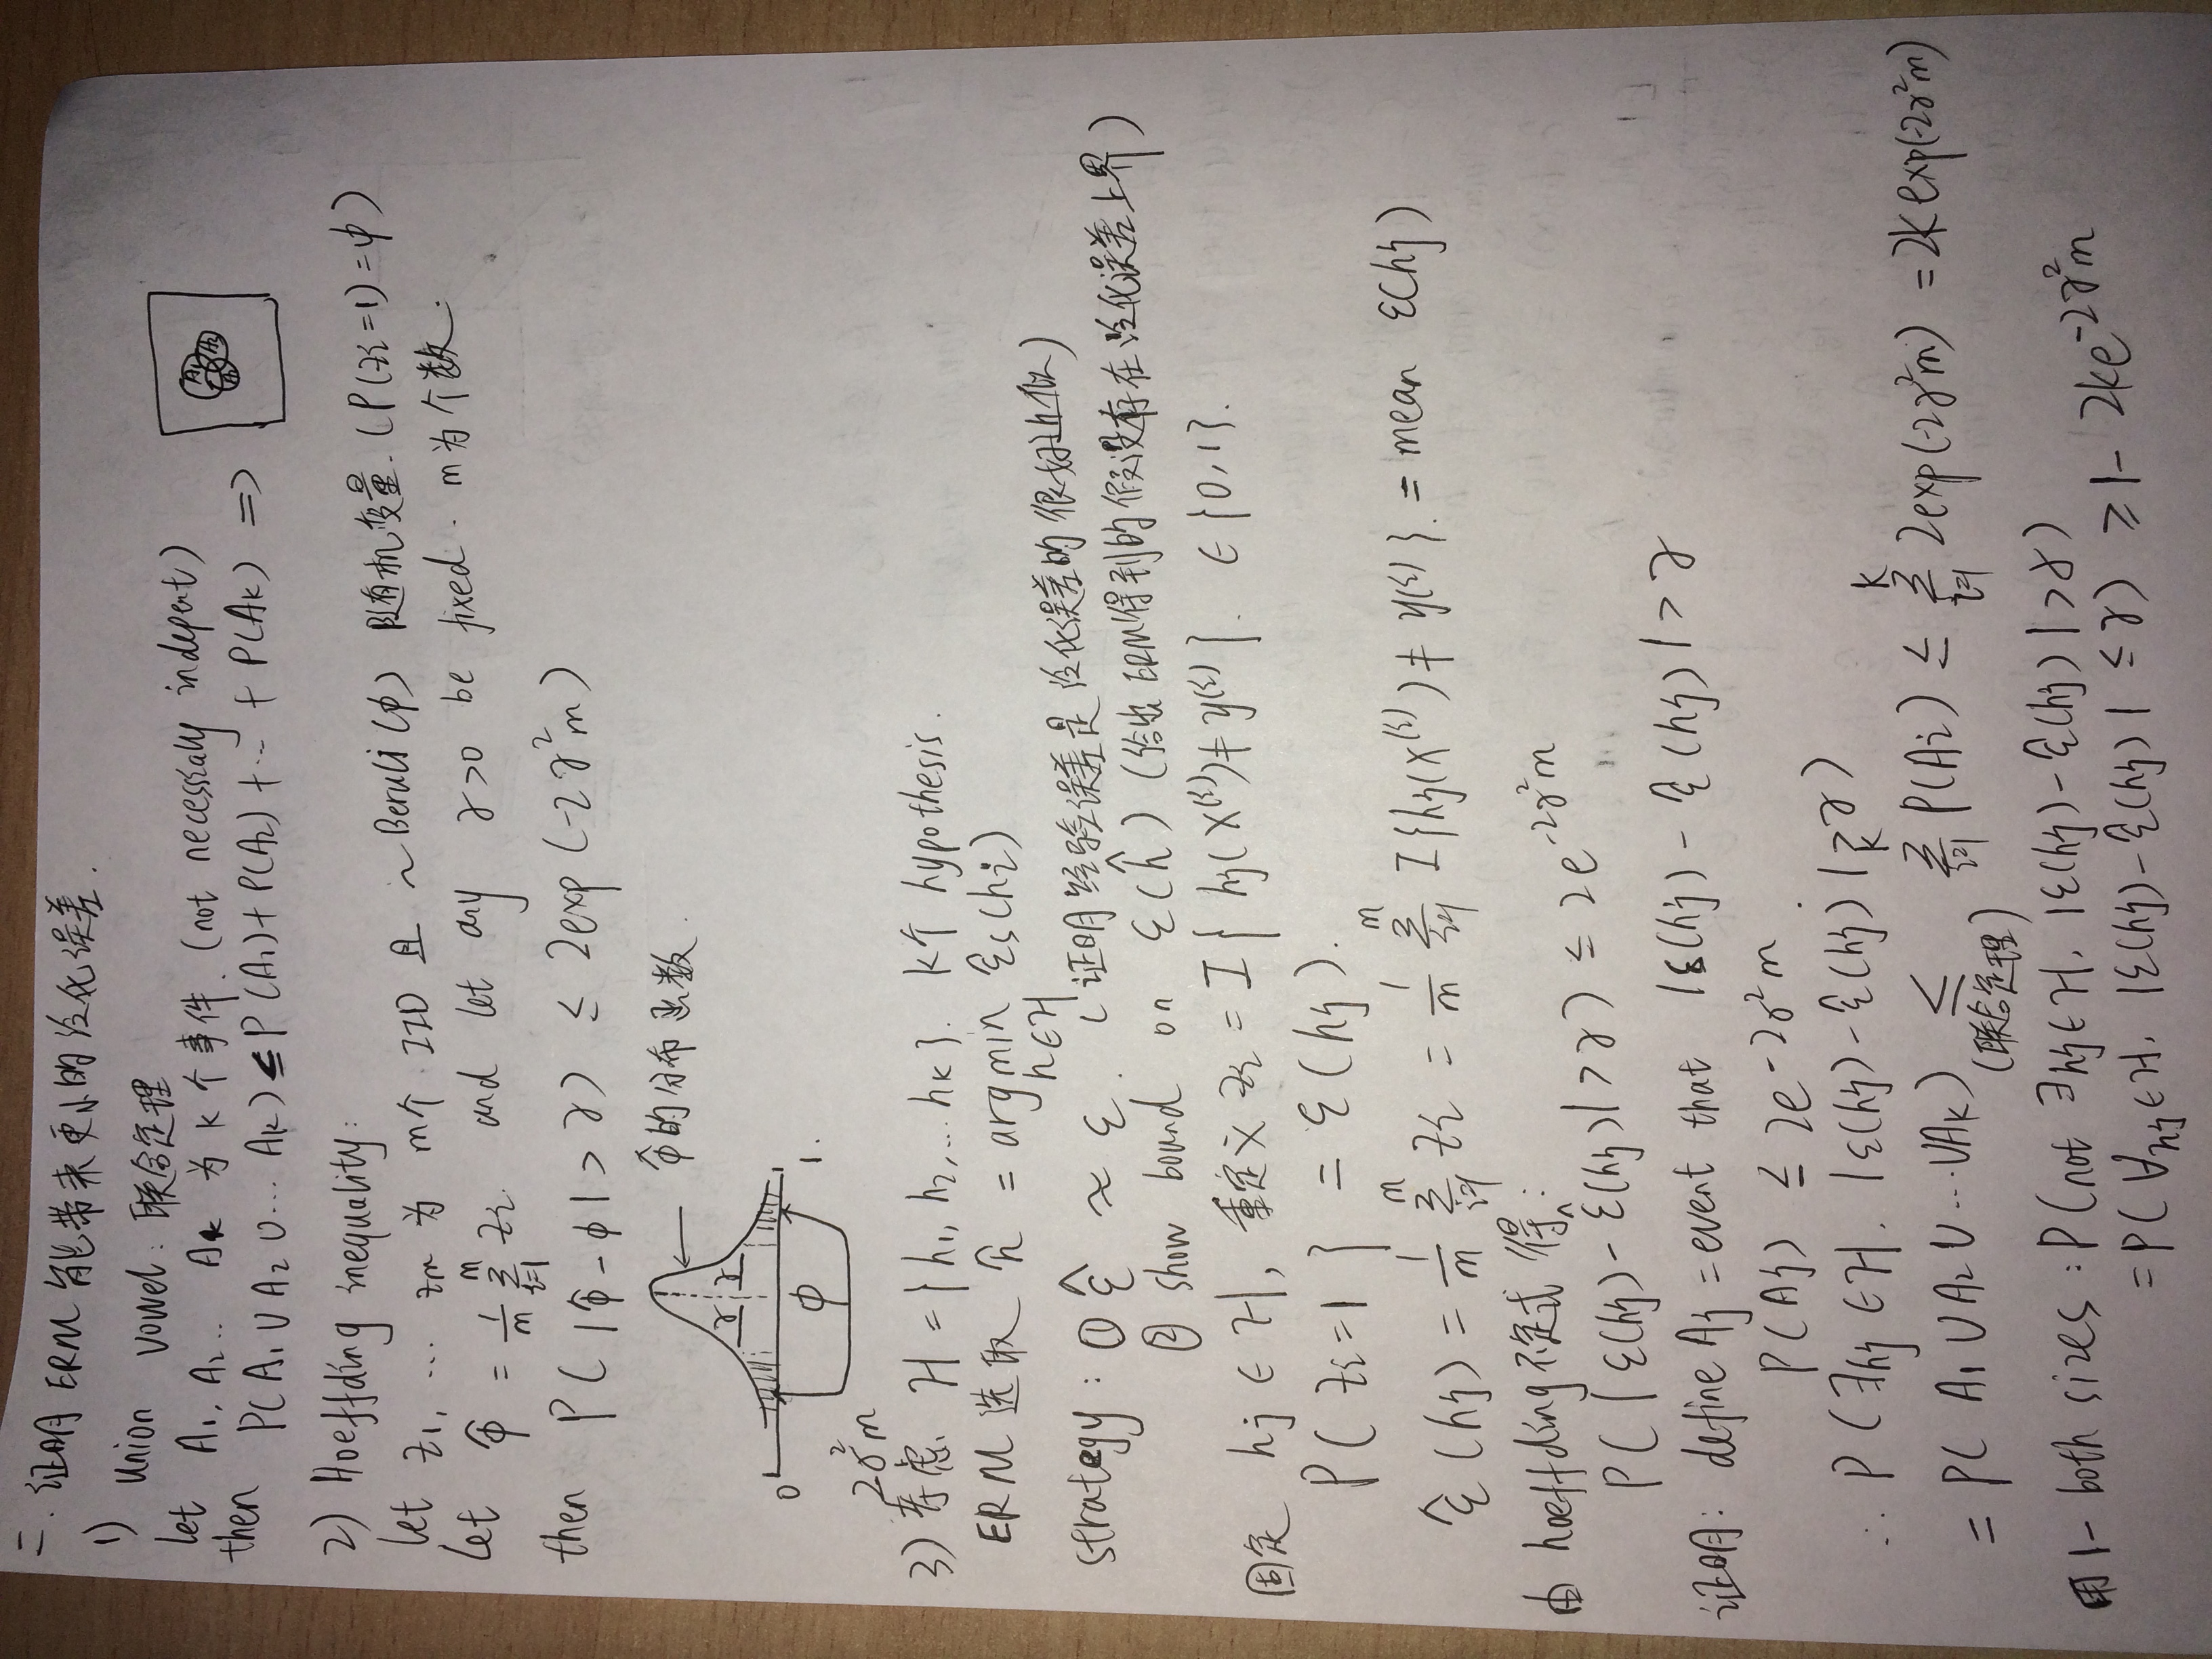 二. 证明 ERM 能带来更小的泛化误差.
1) union vowel: 联合定理
let A₁, A₂.. Aₖ 为 k 个事件. (not necessialy indepent)
then P(A₁ ∪ A₂ ∪ ... Aₖ) ≤ P(A₁) + P(A₂) + ... + P(Aₖ) =>
A₁ A₂ A₃
2) Hoeffding inequality:
let z₁, ... zₘ 为 m个 IID 且 ~Beruli(φ) 随机变量. (P(zᵢ=1)=φ)
let φ̂ = 1/m Σᵢ₌₁ᵐ zᵢ. and let any γ>0 be fixed. m为个数.
then P( |φ̂ - φ| > γ) ≤ 2exp(-2γ²m)
φ̂的分布函数.
γ γ
0 φ 1.
2γ²m
3) 考虑 H = {h₁, h₂, ... hₖ}. k个 hypothesis.
ERM 选取 ĥ = argmin ε̂s(hᵢ)
h∈H
strategy: ① ε̂ ≈ ε. (证明经验误差是泛化误差的很好近似)
② show bound on ε(ĥ) (给出ERM得到的假设存在泛化误差上界)
固定 hj ∈ H, 重定义 zᵢ = I{ hj(x⁽ⁱ⁾) ≠ y⁽ⁱ⁾ }. ∈{0,1}.
P( zᵢ=1 } = ε(hj).
ε̂(hj) = 1/m Σᵢ₌₁ᵐ zᵢ = 1/m Σᵢ₌₁ᵐ I{hj(x⁽ⁱ⁾) ≠ y⁽ⁱ⁾}. = mean ε(hj)
由 hoeffding不定式 得:
P( |ε(hj) - ε̂(hj)| > γ) ≤ 2e^{-2γ²m}
证明: define Aj = event that |ε(hj) - ε̂(hj)| > γ
P(Aj) ≤ 2e^{-2γ²m}.
∴ P(∃hj ∈ H. |ε(hj) - ε̂(hj)| > γ)
= P( A₁ ∪ A₂ ∪ ... ∪Aₖ) ≤ Σᵢ₌₁ᵏ P(Aᵢ) ≤ Σᵢ₌₁ᵏ 2exp(-2γ²m) = 2k exp(-2γ²m)
(联合定理)
用 1- both sizes: P(not ∃hj∈H. |ε(hj) - ε̂(hj)| > γ)
= P( ∀hj ∈ H. |ε(hj) - ε̂(hj)| ≤ γ) ≥ 1 - 2ke^{-2γ²m}